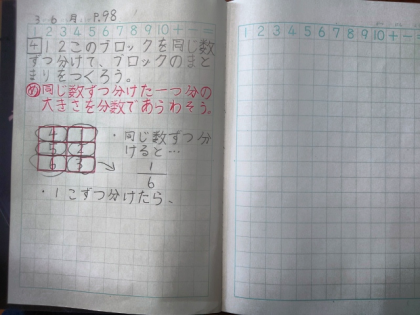 3 6 月 P.98
1 2 3 4 5 6 7 8 9 10 + - =
4 12このブロックを同じ数
ずつ分けて、ブロックのまと
まりをつくろう。
め 同じ数ずつ分けた一つ分の
大きさを分数であらわそう。
4 1
5 2
6 3
・同じ数ずつ分
けると…
1
6
・1こずつ分けたら、
1 2 3 4 5 6 7 8 9 10 + - =